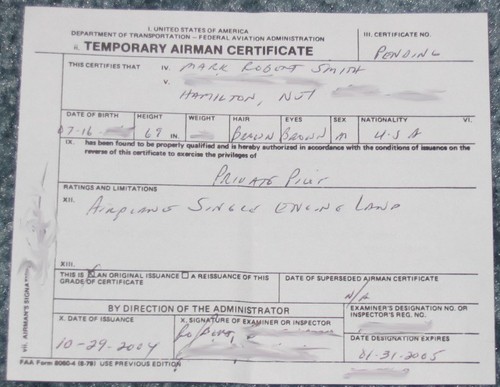 I. UNITED STATES OF AMERICA
DEPARTMENT OF TRANSPORTATION – FEDERAL AVIATION ADMINISTRATION
III. CERTIFICATE NO.
II. TEMPORARY AIRMAN CERTIFICATE
PENDING
THIS CERTIFIES THAT IV. MARK ROBERT SMITH
V.
HAMILTON,
DATE OF BIRTH HEIGHT WEIGHT HAIR EYES SEX NATIONALITY VI.
07-16- 67 IN. BROWN BROWN M USA
IX. has been found to be properly qualified and is hereby authorized in accordance with the conditions of issuance on the
reverse of this certificate to exercise the privileges of
PRIVATE PILOT
RATINGS AND LIMITATIONS
XII. AIRPLANE SINGLE ENGINE LAND
XIII.
THIS IS AN ORIGINAL ISSUANCE A REISSUANCE OF THIS
GRADE OF CERTIFICATE
DATE OF SUPERSEDED AIRMAN CERTIFICATE
N/A
BY DIRECTION OF THE ADMINISTRATOR
EXAMINER'S DESIGNATION NO. OR
INSPECTOR'S REG. NO.
X. DATE OF ISSUANCE
X. SIGNATURE OF EXAMINER OR INSPECTOR
10-29-2004
DATE DESIGNATION EXPIRES
01-31-2005
FAA Form 8060-4 (8-78) USE PREVIOUS EDITION
VII. AIRMAN'S SIGNA